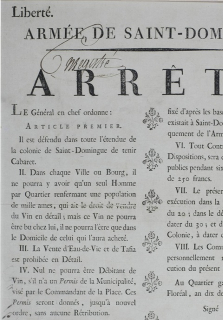 Liberté.
ARMÉE DE SAINT-DOM
ARRÊ
LE Général en chef ordonne :
ARTICLE PREMIER.
Il est défendu dans toute l'étendue de
la colonie de Saint-Domingue de tenir
Cabaret.
II. Dans chaque Ville ou Bourg, il
ne pourra y avoir qu'un seul Homme
par Quartier renfermant une population
de mille ames, qui ait le droit de vendre
du Vin en détail ; mais ce Vin ne pourra
être bu chez lui, il ne pourra l'être que dans
le Domicile de celui qui l'aura acheté.
III. La Vente d'Eau-de-Vie et de Tafia
est prohibée en Détail.
IV. Nul ne pourra être Débitant de
Vin, s'il n'a un Permis de la Municipalité,
visé par le Commandant de la Place. Ces
Permis seront donnés, jusqu'à nouvel
ordre, sans aucune Rétribution.
fixé d'après les base
existait à Saint-Dom
quement de l'Arm
VI. Tout Cont
Dispositions, sera
publics pendant
de 250 francs.
VII. Le présent
exécution dans la
du 20 ; dans le dé
dater du 30 ; et d
Colonie, à dater
VIII. Les Comm
personnellement
cution du présent
Au Quartier ga
Floréal, an dix d
Signé